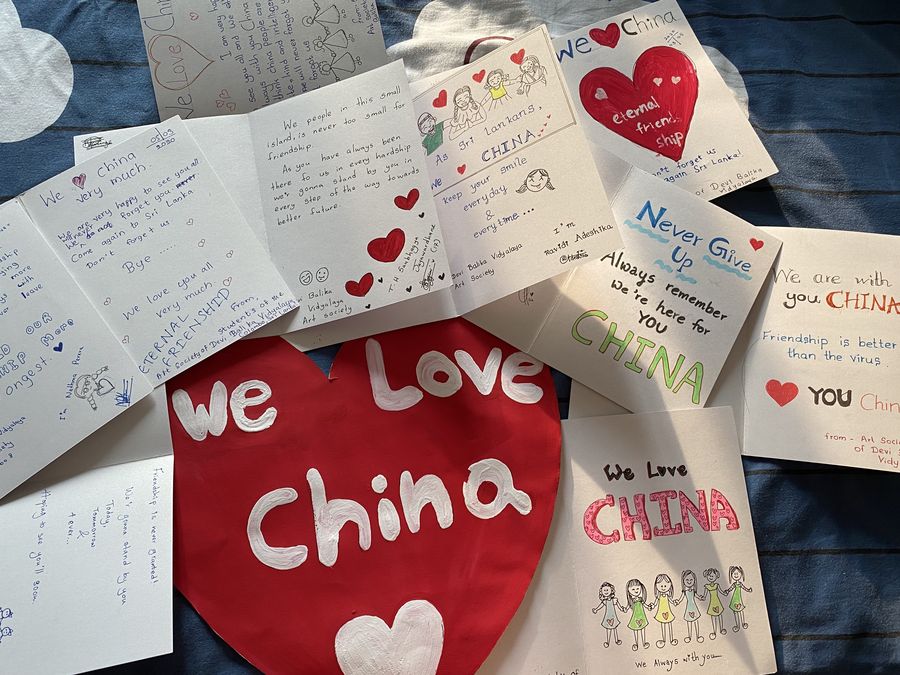 We Love Chin
I am very hap
see you all and We do
We people in this small
island, is never too small for
friendship.
As you have always been
there fo us in every hardship
we're gonna stand by you in
every step of the way towards
better future.
Balika
Vidyalaya
Art Society
As Sri Lankans,
We CHINA
Keep your smile
everyday
&
everytime...
I'm
Ravidi Adeshika
Devi Balika Vidyalaya
Art Society
We China
eternal
friend
ship
Don't forget us
again Sri Lanka!
Devi Balika
Vidyalaya
We China
very much.
05/03
2020
We are very happy to see you all.
We never forget you
Come again to Sri Lanka
Don't forget us
Bye ....
We love you all
very much
ETERNAL
FRIENDSHIP
From,
Students of the
Art Society of Devi Balika Vidyalaya
more
leave
ongest.
I'm
Never Give
Up
Always remember
We're here for
YOU
CHINA
We are with
you CHINA
Friendship is better
than the virus.
YOU Chin
from - Art Socie
of Devi
Vidy
We Love
China
We Love
CHINA
We Always with you
Friendship is never granted!
We're gonna stand by you
Today,
Tomorrow
&
4 ever..
Hoping to see you'll soon.